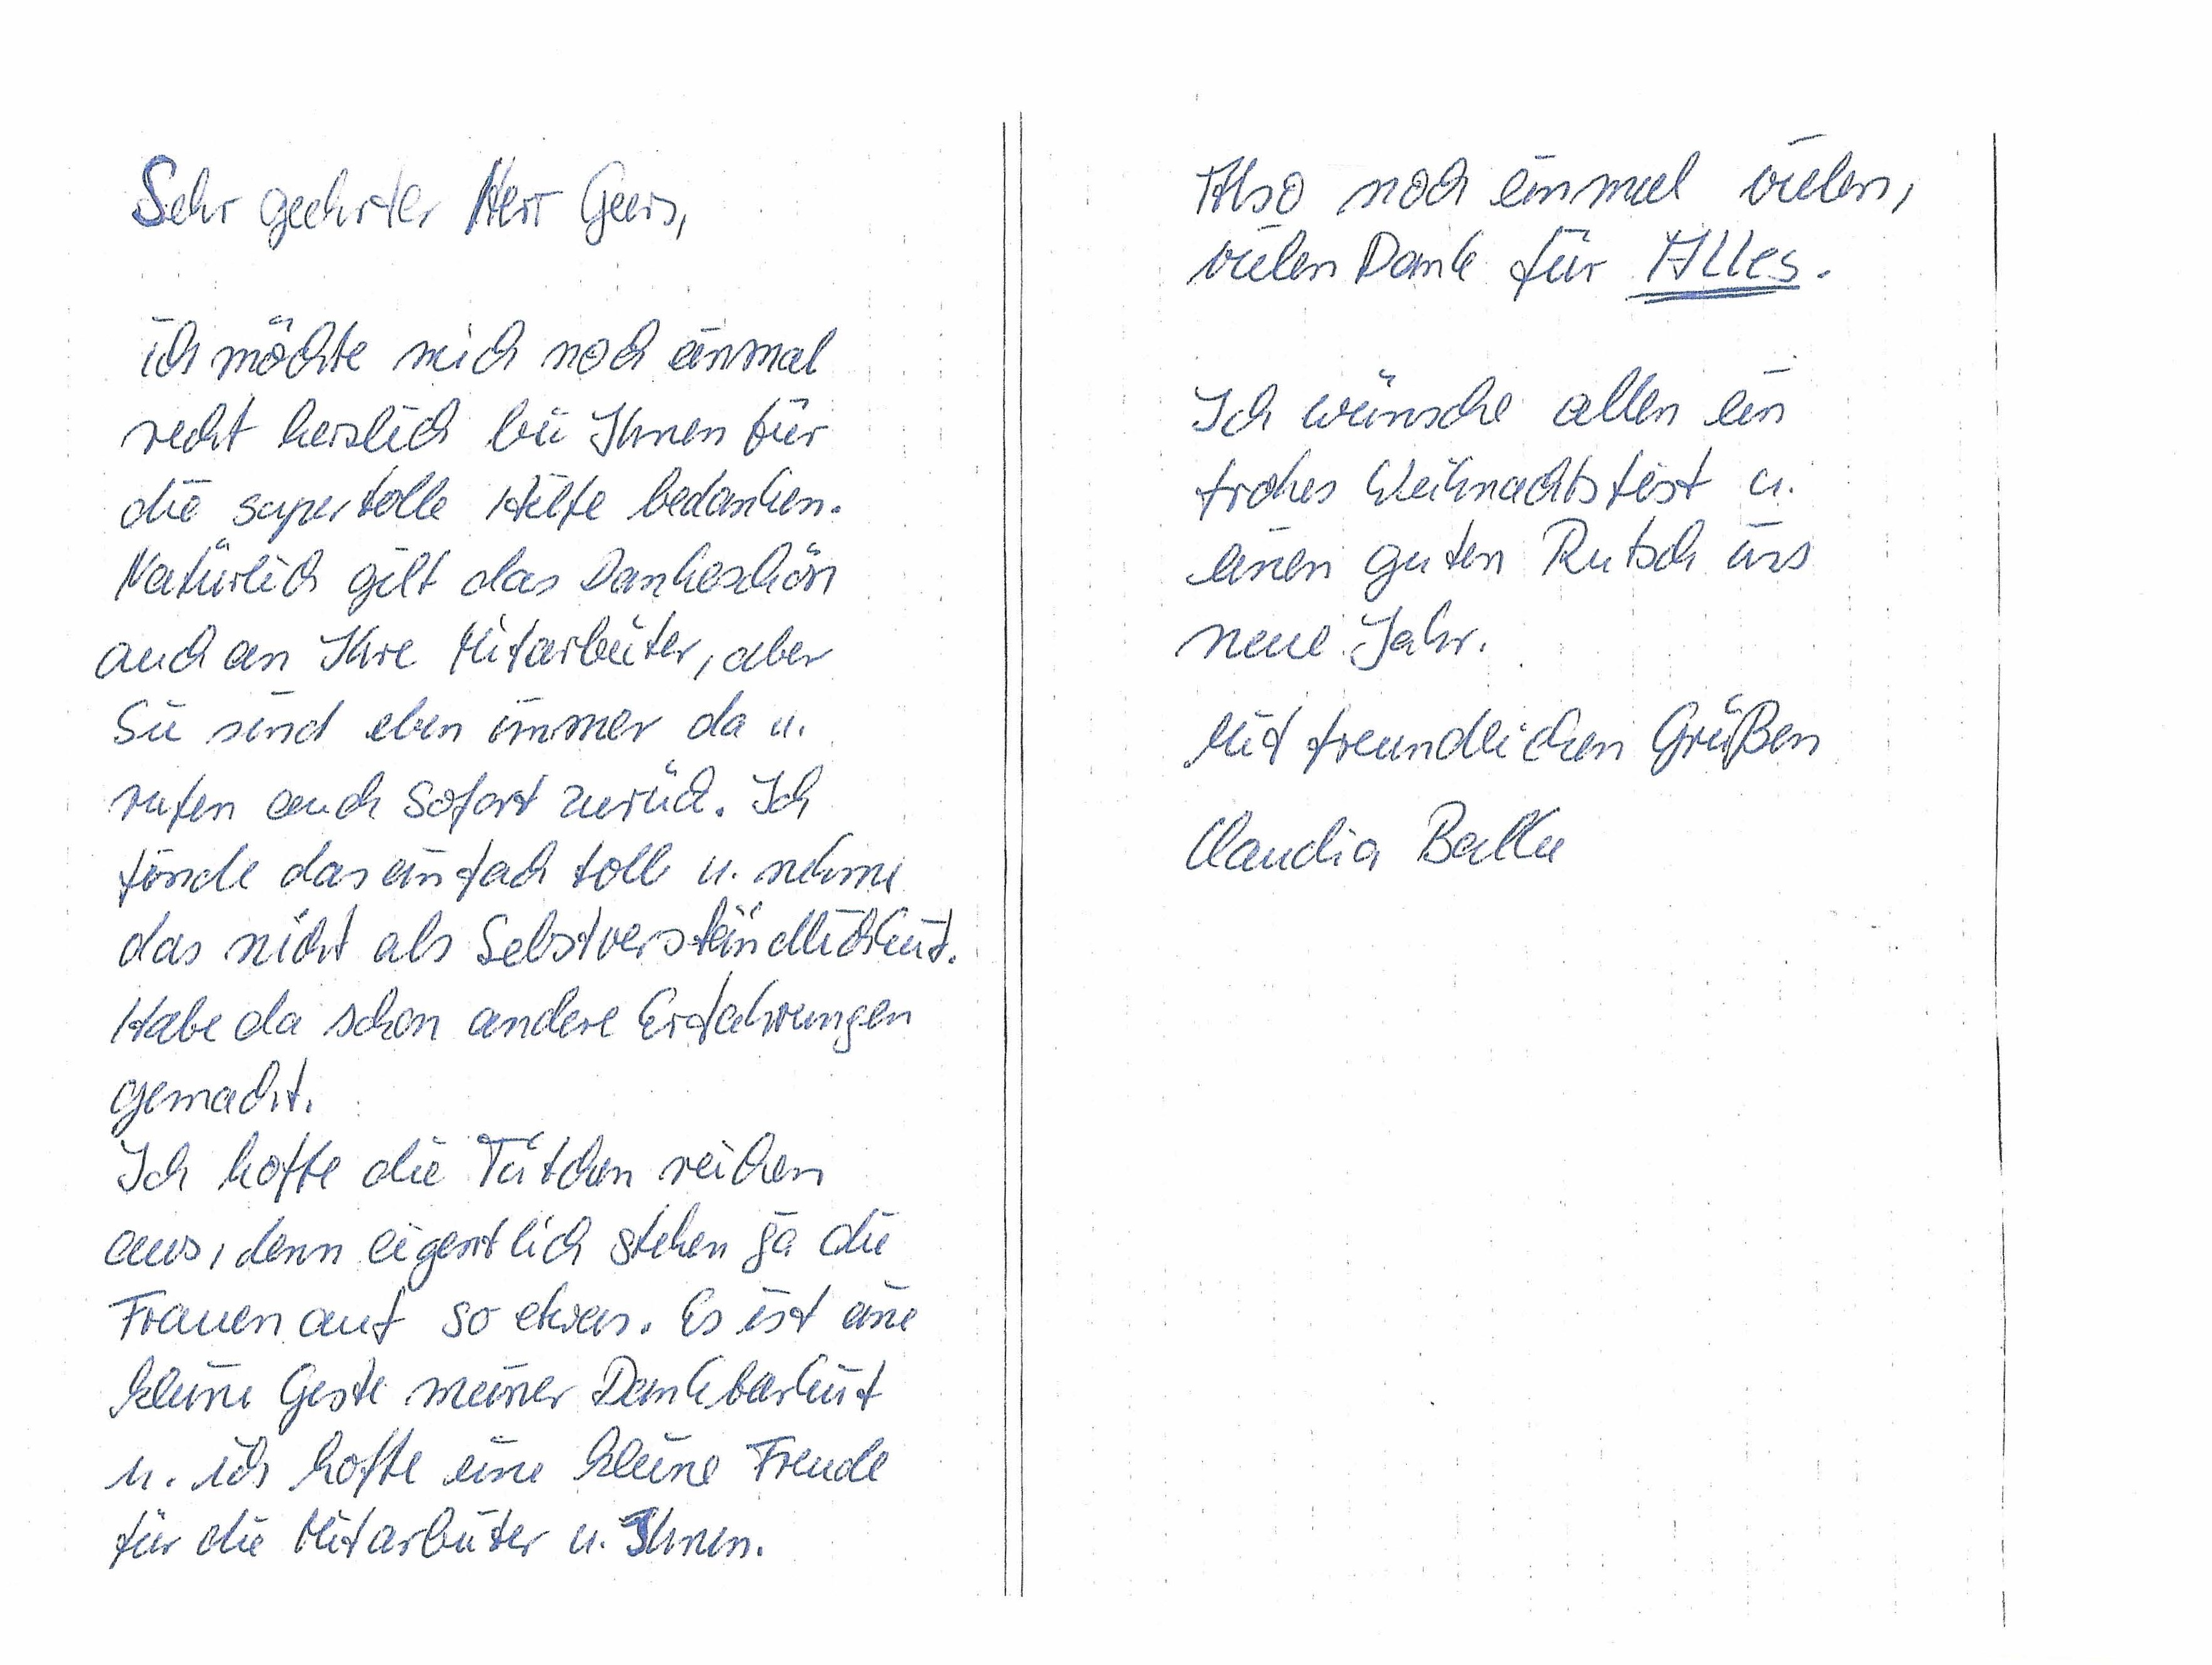 Sehr geehrter Herr Geers,
ich möchte mich noch einmal
recht herzlich bei Ihnen für
die supertolle Hilfe bedanken.
Natürlich gilt das Dankeschön
auch an Ihre Mitarbeiter, aber
Sie sind eben immer da u.
rufen auch sofort zurück. Ich
finde das einfach toll u. nehme
das nicht als Selbstverständlichkeit.
Habe da schon andere Erfahrungen
gemacht.
Ich hoffe die Tütchen reichen
aus, denn eigentlich stehen ja die
Frauen auf so etwas. Es ist eine
kleine Geste meiner Dankbarkeit
u. ich hoffe eine kleine Freude
für die Mitarbeiter u. Ihnen.
Also noch einmal vielen,
vielen Dank für Alles.
Ich wünsche allen ein
frohes Weihnachtsfest u.
einen guten Rutsch ins
neue Jahr.
Mit freundlichen Grüßen
Claudia